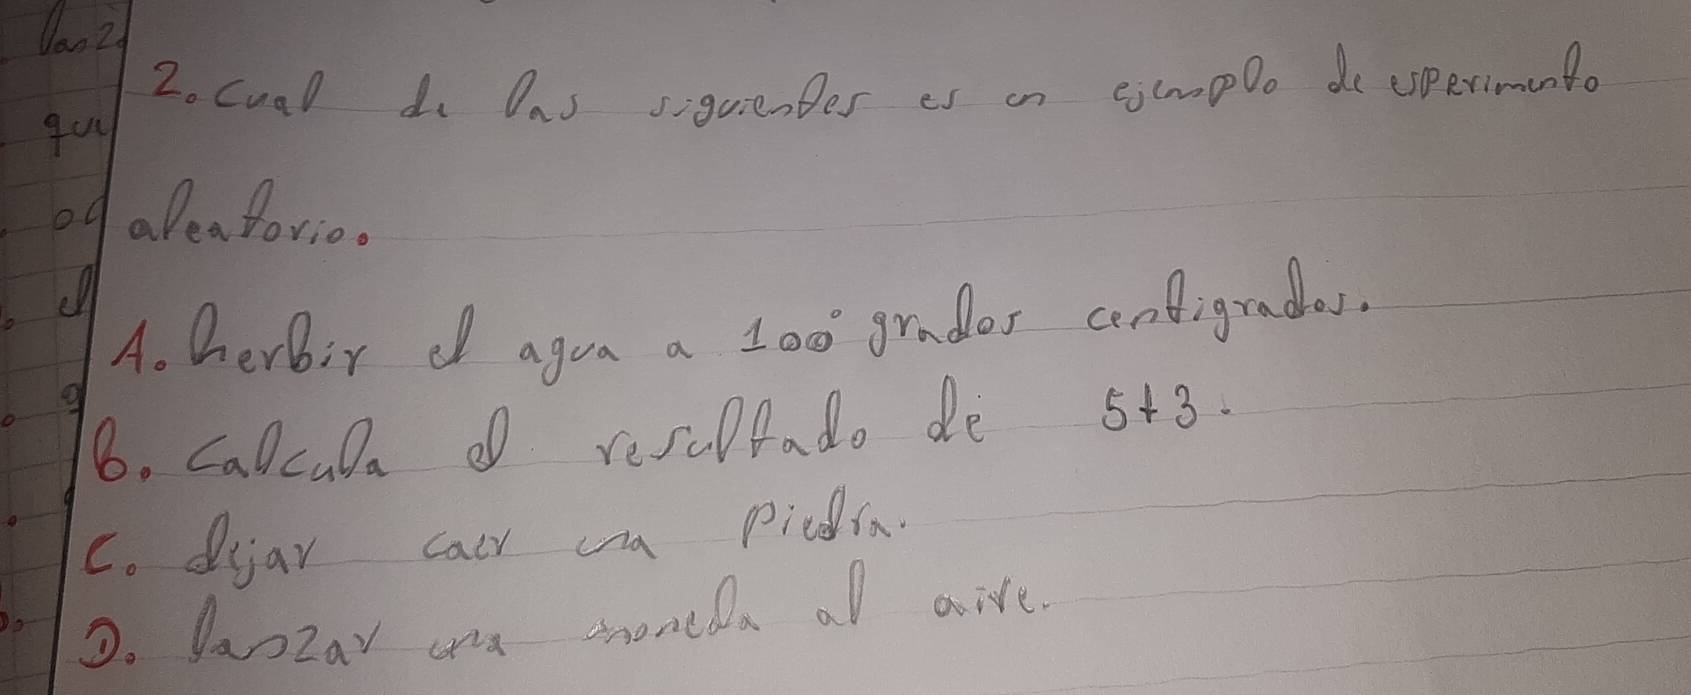 2. Cual de las siguientes es un ejemplo de esperimento
aleatorio.
A. herbir el agua a 100° grados centigrados.
B. calcula el resultado de 5+3.
C. dejar caer una piedra.
D. lanzar una moneda al aire.